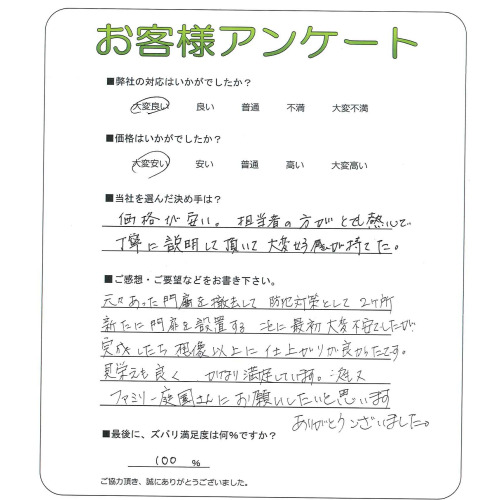 お客様アンケート
■弊社の対応はいかがでしたか?
大変良い 良い 普通 不満 大変不満
■価格はいかがでしたか?
大変安い 安い 普通 高い 大変高い
■当社を選んだ決め手は?
価格が安い。担当者の方がとても熱心で
丁寧に説明して頂いて大変好感が持てた。
■ご感想・ご要望などをお書き下さい。
元々あった門扉を撤去して 防犯対策として 2ヶ所
新たに門扉を設置する ことに最初大変不安でしたが
完成したら想像以上に仕上がりが良かったです。
見栄えも良く かなり満足しています。
ファミリー庭園さんにお願いしたいと思います
ありがとうございました。
■最後に、ズバリ満足度は何%ですか?
100 %
ご協力頂き、誠にありがとうございました。